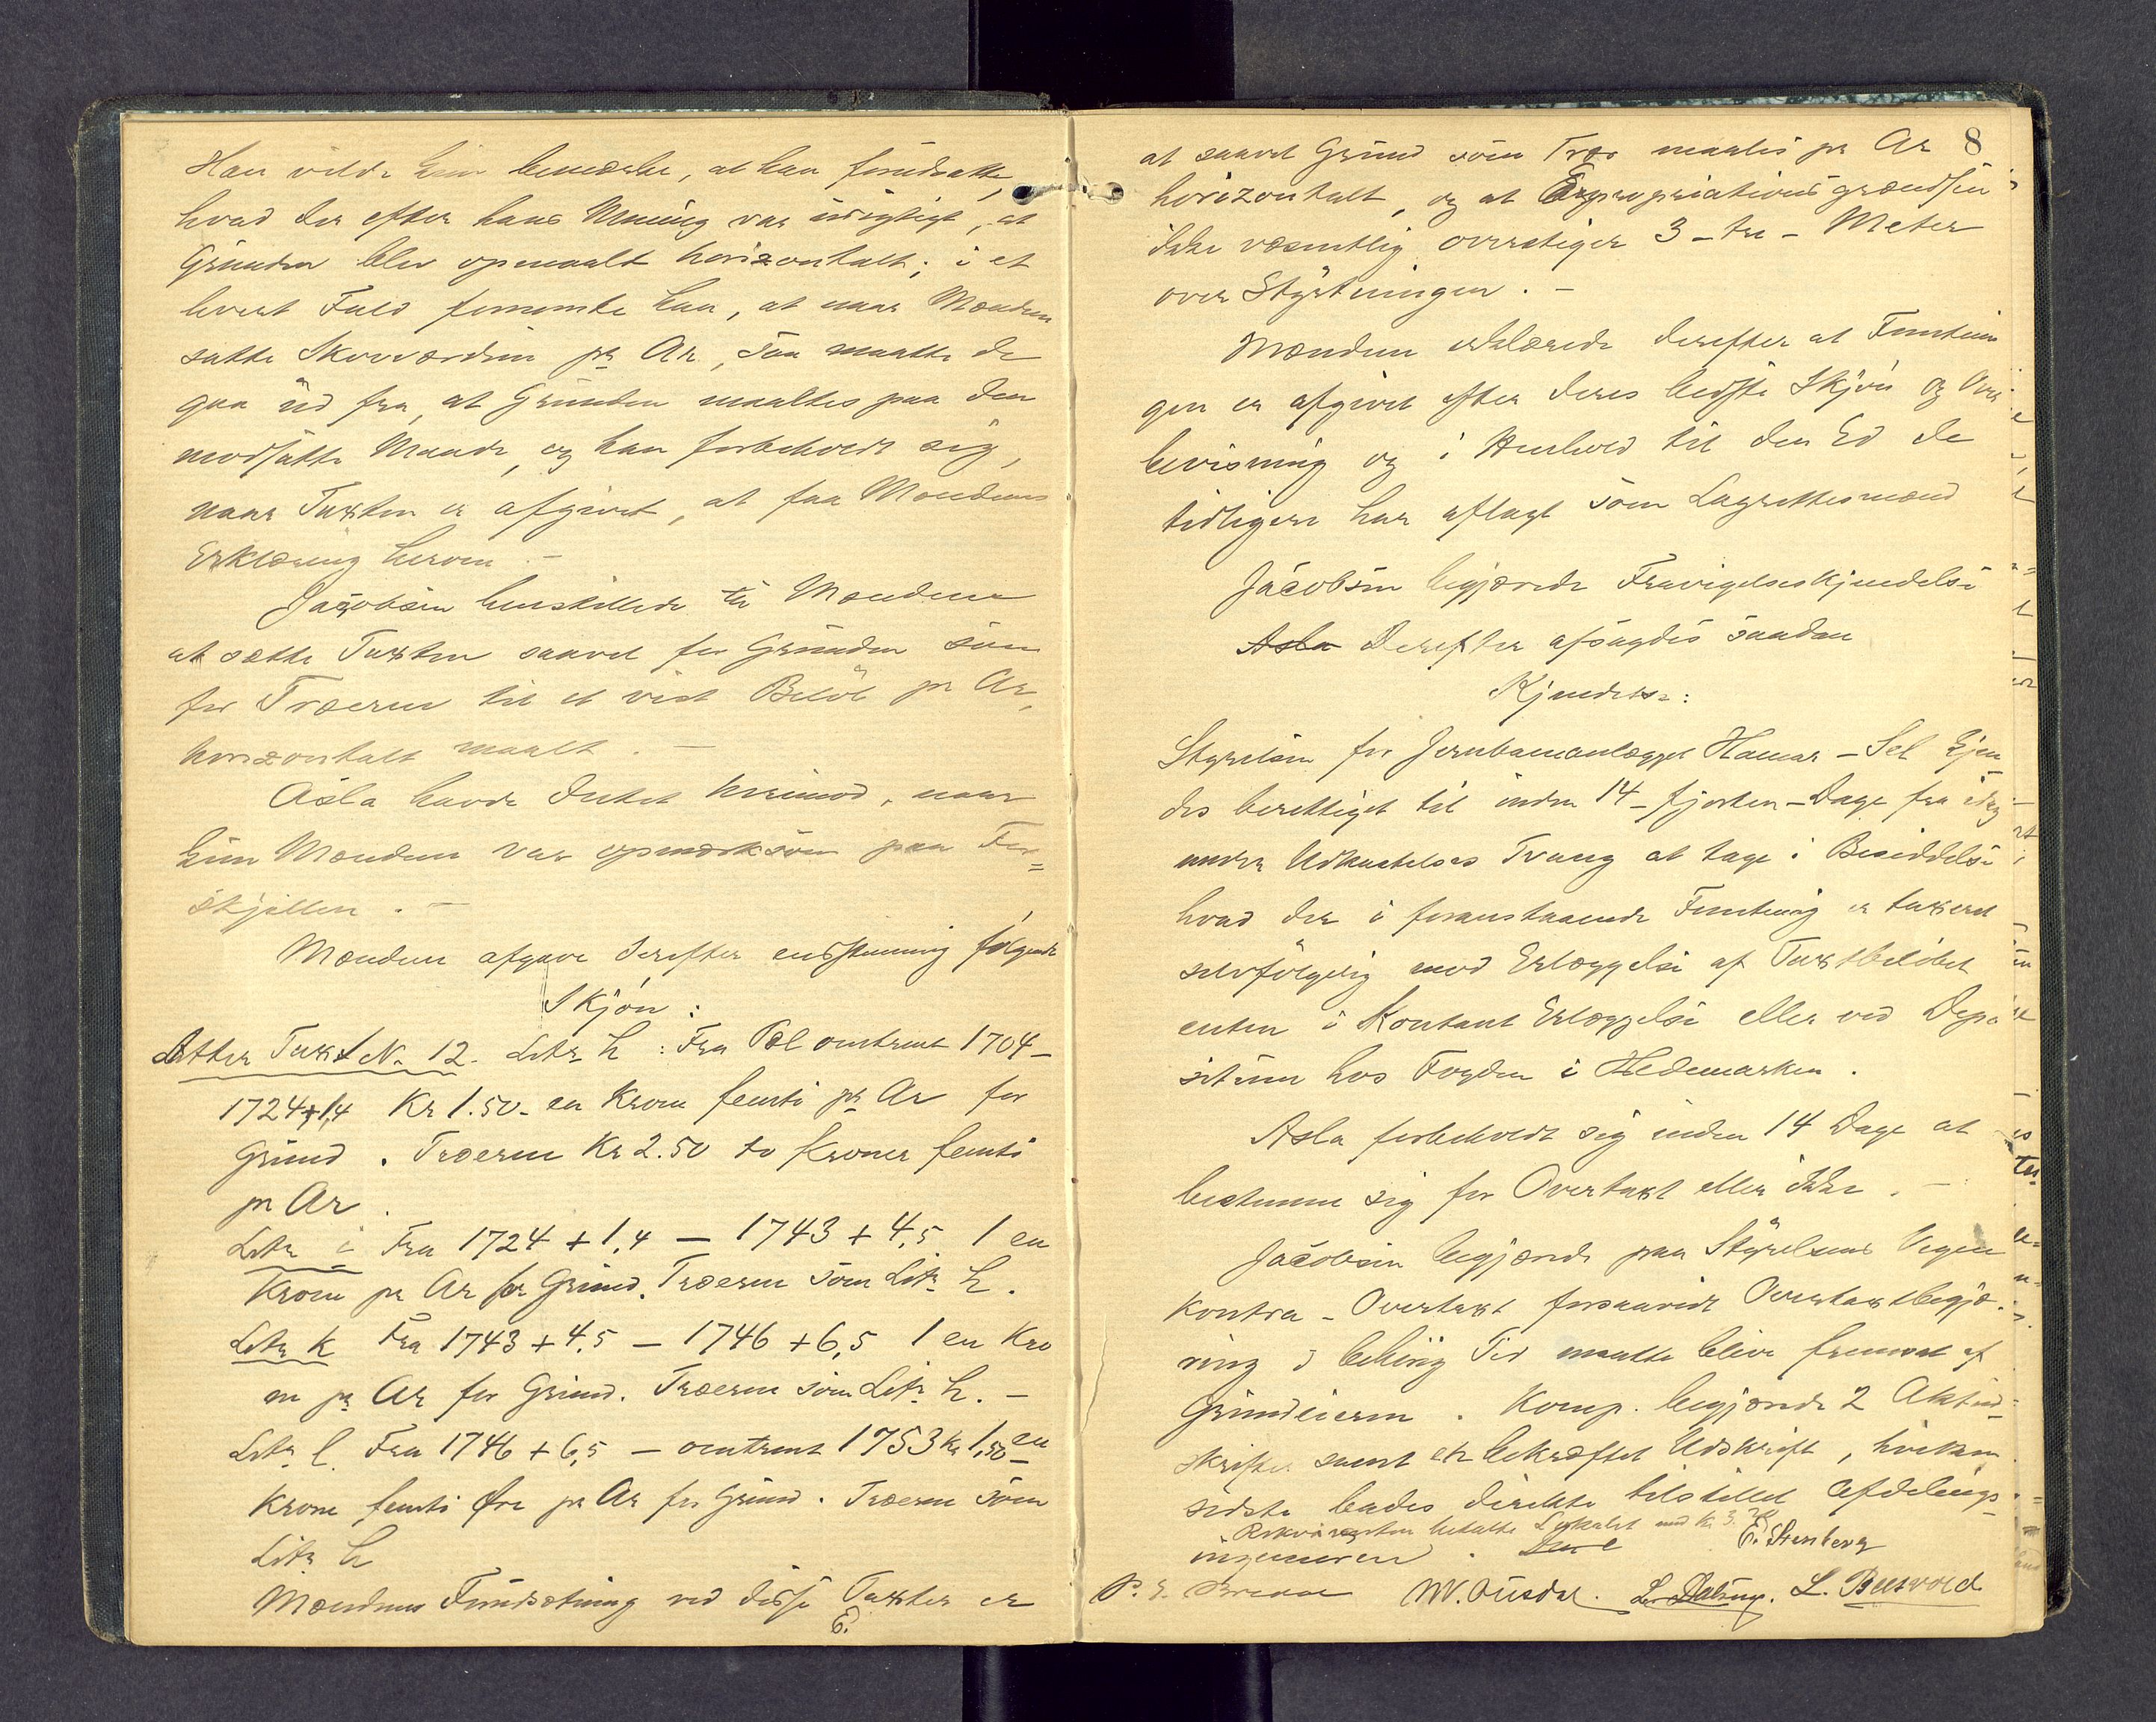 Han vilde kun bemærke, at han forudsatte,
hvad der efter hans Mening var urigtigt, at
Grunden blev opmaalt horizontalt; i et
hvert Fald formente han, at naar Mændene
satte Skovværdien pr Ar, saa maatte de
gaa ud fra, at Grunden maaltes paa den
modsatte Maade, og han forbeholdt sig,
naar Taxten er afgivet, at faa Mændenes
Erklæring herom. –
Jacobsen henstillede til Mændene
at sætte Taxten saavel for Grunden som
for Træerne til et vist Beløb pr Ar,
horizontalt maalt. –
Asla havde Intet herimod, naar
kun Mændene var opmærksom paa For=
skjellen. –
Mændene afgave derefter enstemmig følgende
Skjøn:
Litter Taxt No. 12. Litr h: Fra Pæl omtrent 1704 –
1724 + 1,4 Kr 1.50 en Krone femti pr Ar for
Grund. Træerne Kr 2.50 to Kroner femti
pr Ar.
Litr i Fra 1724 + 1,4 – 1743 + 4,5 1 en
Krone pr Ar for Grund. Træerne som Litr h.
Litr k Fra 1743 + 4,5 – 1746 + 6,5 1 en Kro
ne pr Ar for Grund. Træerne som Litr h. –
Litr l Fra 1746 + 6,5 – omtrent 1753 Kr 1,50 en
Krone femti Øre pr Ar for Grund. Træerne som
Litr h
Mændenes Forudsætning ved disse Taxter er
E.
8
at saavel Grund som Træer maales pr Ar
horizontalt, og at Expropriationsgrændsen
ikke væsentlig overstiger 3 – tre – Meter
over Skjæringen. –
Mændene erklærede derefter at Forretnin
gen er afgivet efter deres bedste Skjøn og Over
bevisning og i Henhold til den Ed de
tidligere har aflagt som Lagrettesmænd
Jacobsen begjærede Fravigelseskjendelse
Asla Derefter afsagdes saadan
Kjendelse:
Styrelsen for Jernbaneanlægget Hamar – Sel kjen
des berettiget til inden 14 – fjorten – Dage fra idag
under Udkastelses Tvang at tage i Besiddelse
hvad der i foranstaaende Forretning er taxeret
selvfølgelig mod Erlæggelse af Taxtbeløbet
enten i Kontant Erlæggelse eller ved Depo
situm hos Fogden i Hedemarken.
Asla forbeholdt sig inden 14 Dage at
bestemme sig for Overtaxt eller ikke. –
Jacobsen begjærede paa Styrelsens Vegne
Kontra – Overtaxt forsaavidt Overtaxtbegjæ
ring i behørig Tid maatte blive fremsat af
Grundeieren. Komp. begjærede 2 Aktaf
skrifter samt en bekræftet Udskrift, hvilken
sidste bades direkte tilstillet Afdelings
Rekvirenten betalte Lokalet med Kr 3.
ingeniøren.
E. Stenberg
P. E. M. Ousdal. L. Beesvold